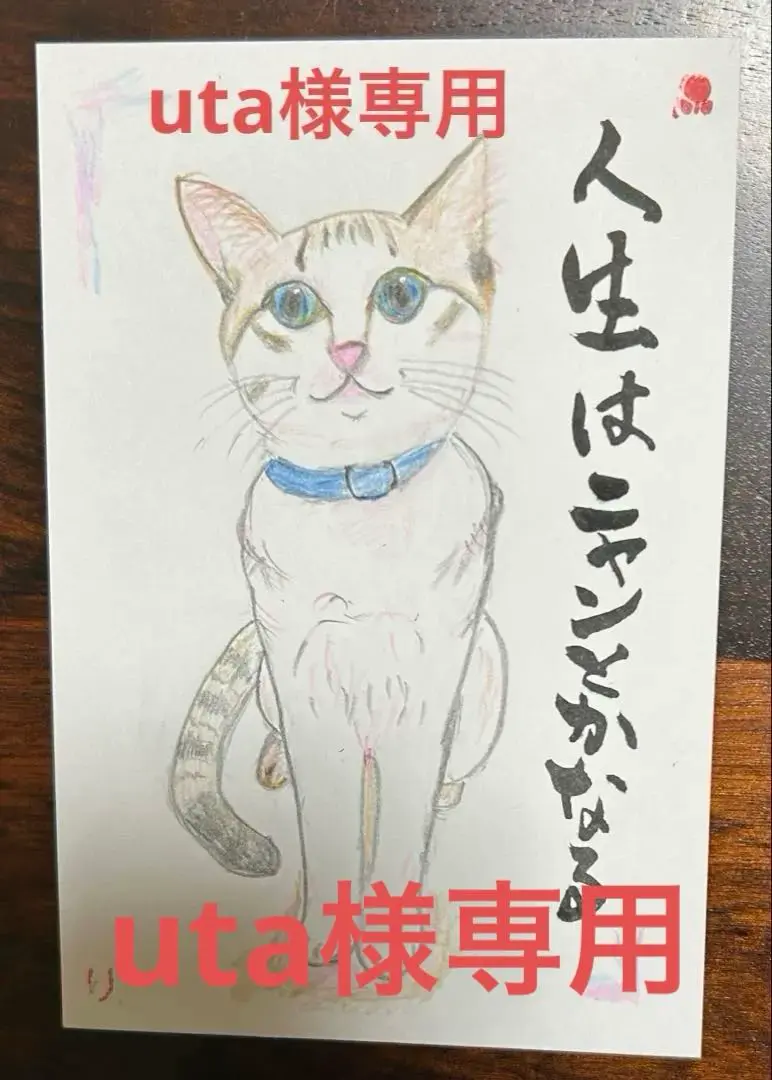 uta様専用
人生はニャンとかなる
uta様専用
り